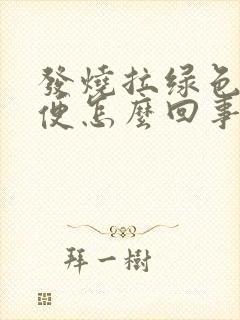 發燒拉绿色
便怎麼回事
拜一樹